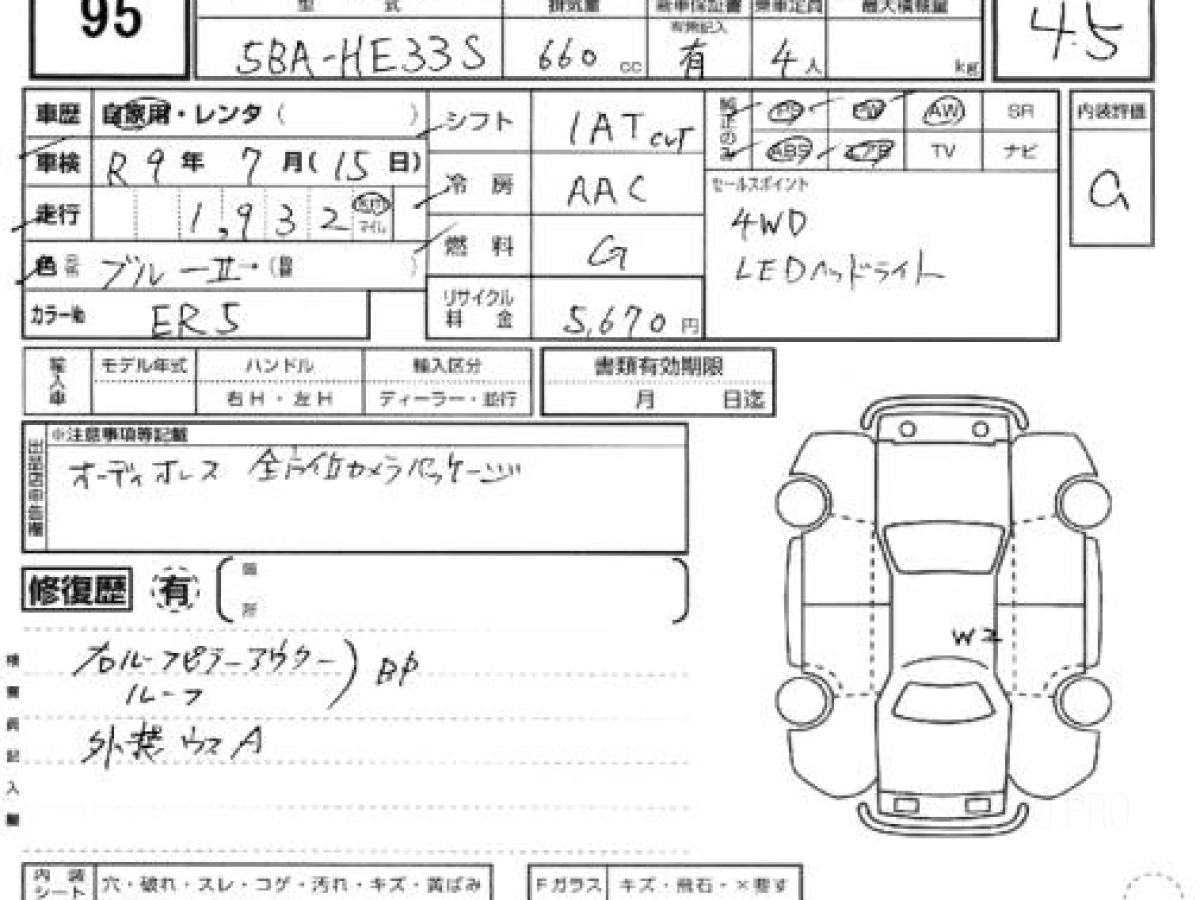 95
型 式 排気量 新車保証書 乗車定員 最大積載量
有無記入
5BA-HE33S 660 cc 有 4人 kg 4.5
車歴 自家用・レンタ ( )
車検 R9年 7月(15日)
走行 1,932 km マイル
色 ブルーⅡ→( )
カラー№ ER5
シフト IAT CVT
冷房 AAC
燃料 G
リサイクル料金 5,670円
純正のみ PS PW AW SR
ABS エアB TV ナビ
セールスポイント
4WD
LEDヘッドライト
内装評価
a
輸入車 モデル年式 ハンドル 輸入区分
右H・左H ディーラー・並行
書類有効期限
月 日迄
※注意事項等記載
オーディオレス 全方位カメラパッケージ
修復歴 有
箇
所
ルーフピラーアウター
ルーフ ) BP
外装ウスA
W2
検査員記入欄
内装シート 穴・破れ・スレ・コゲ・汚れ・キズ・黄ばみ
Fガラス キズ・飛石・×要す
.PRO